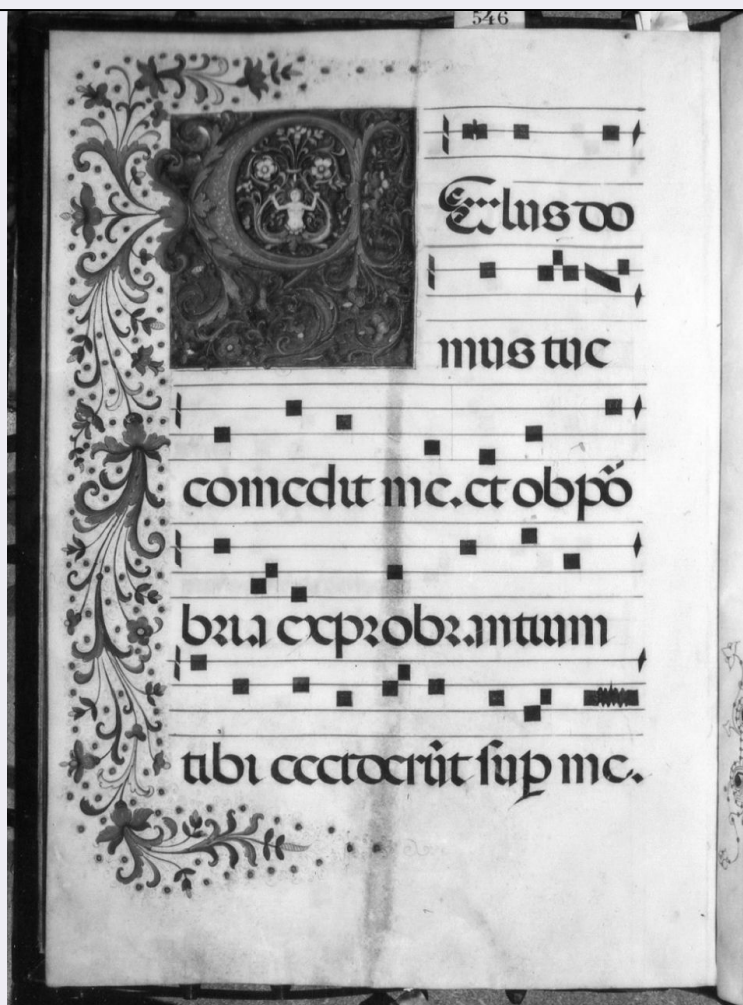 546
ZElus do
mus tue
comedit me. et obpo
bria exprobrantium
tibi ceciderūt sup me.